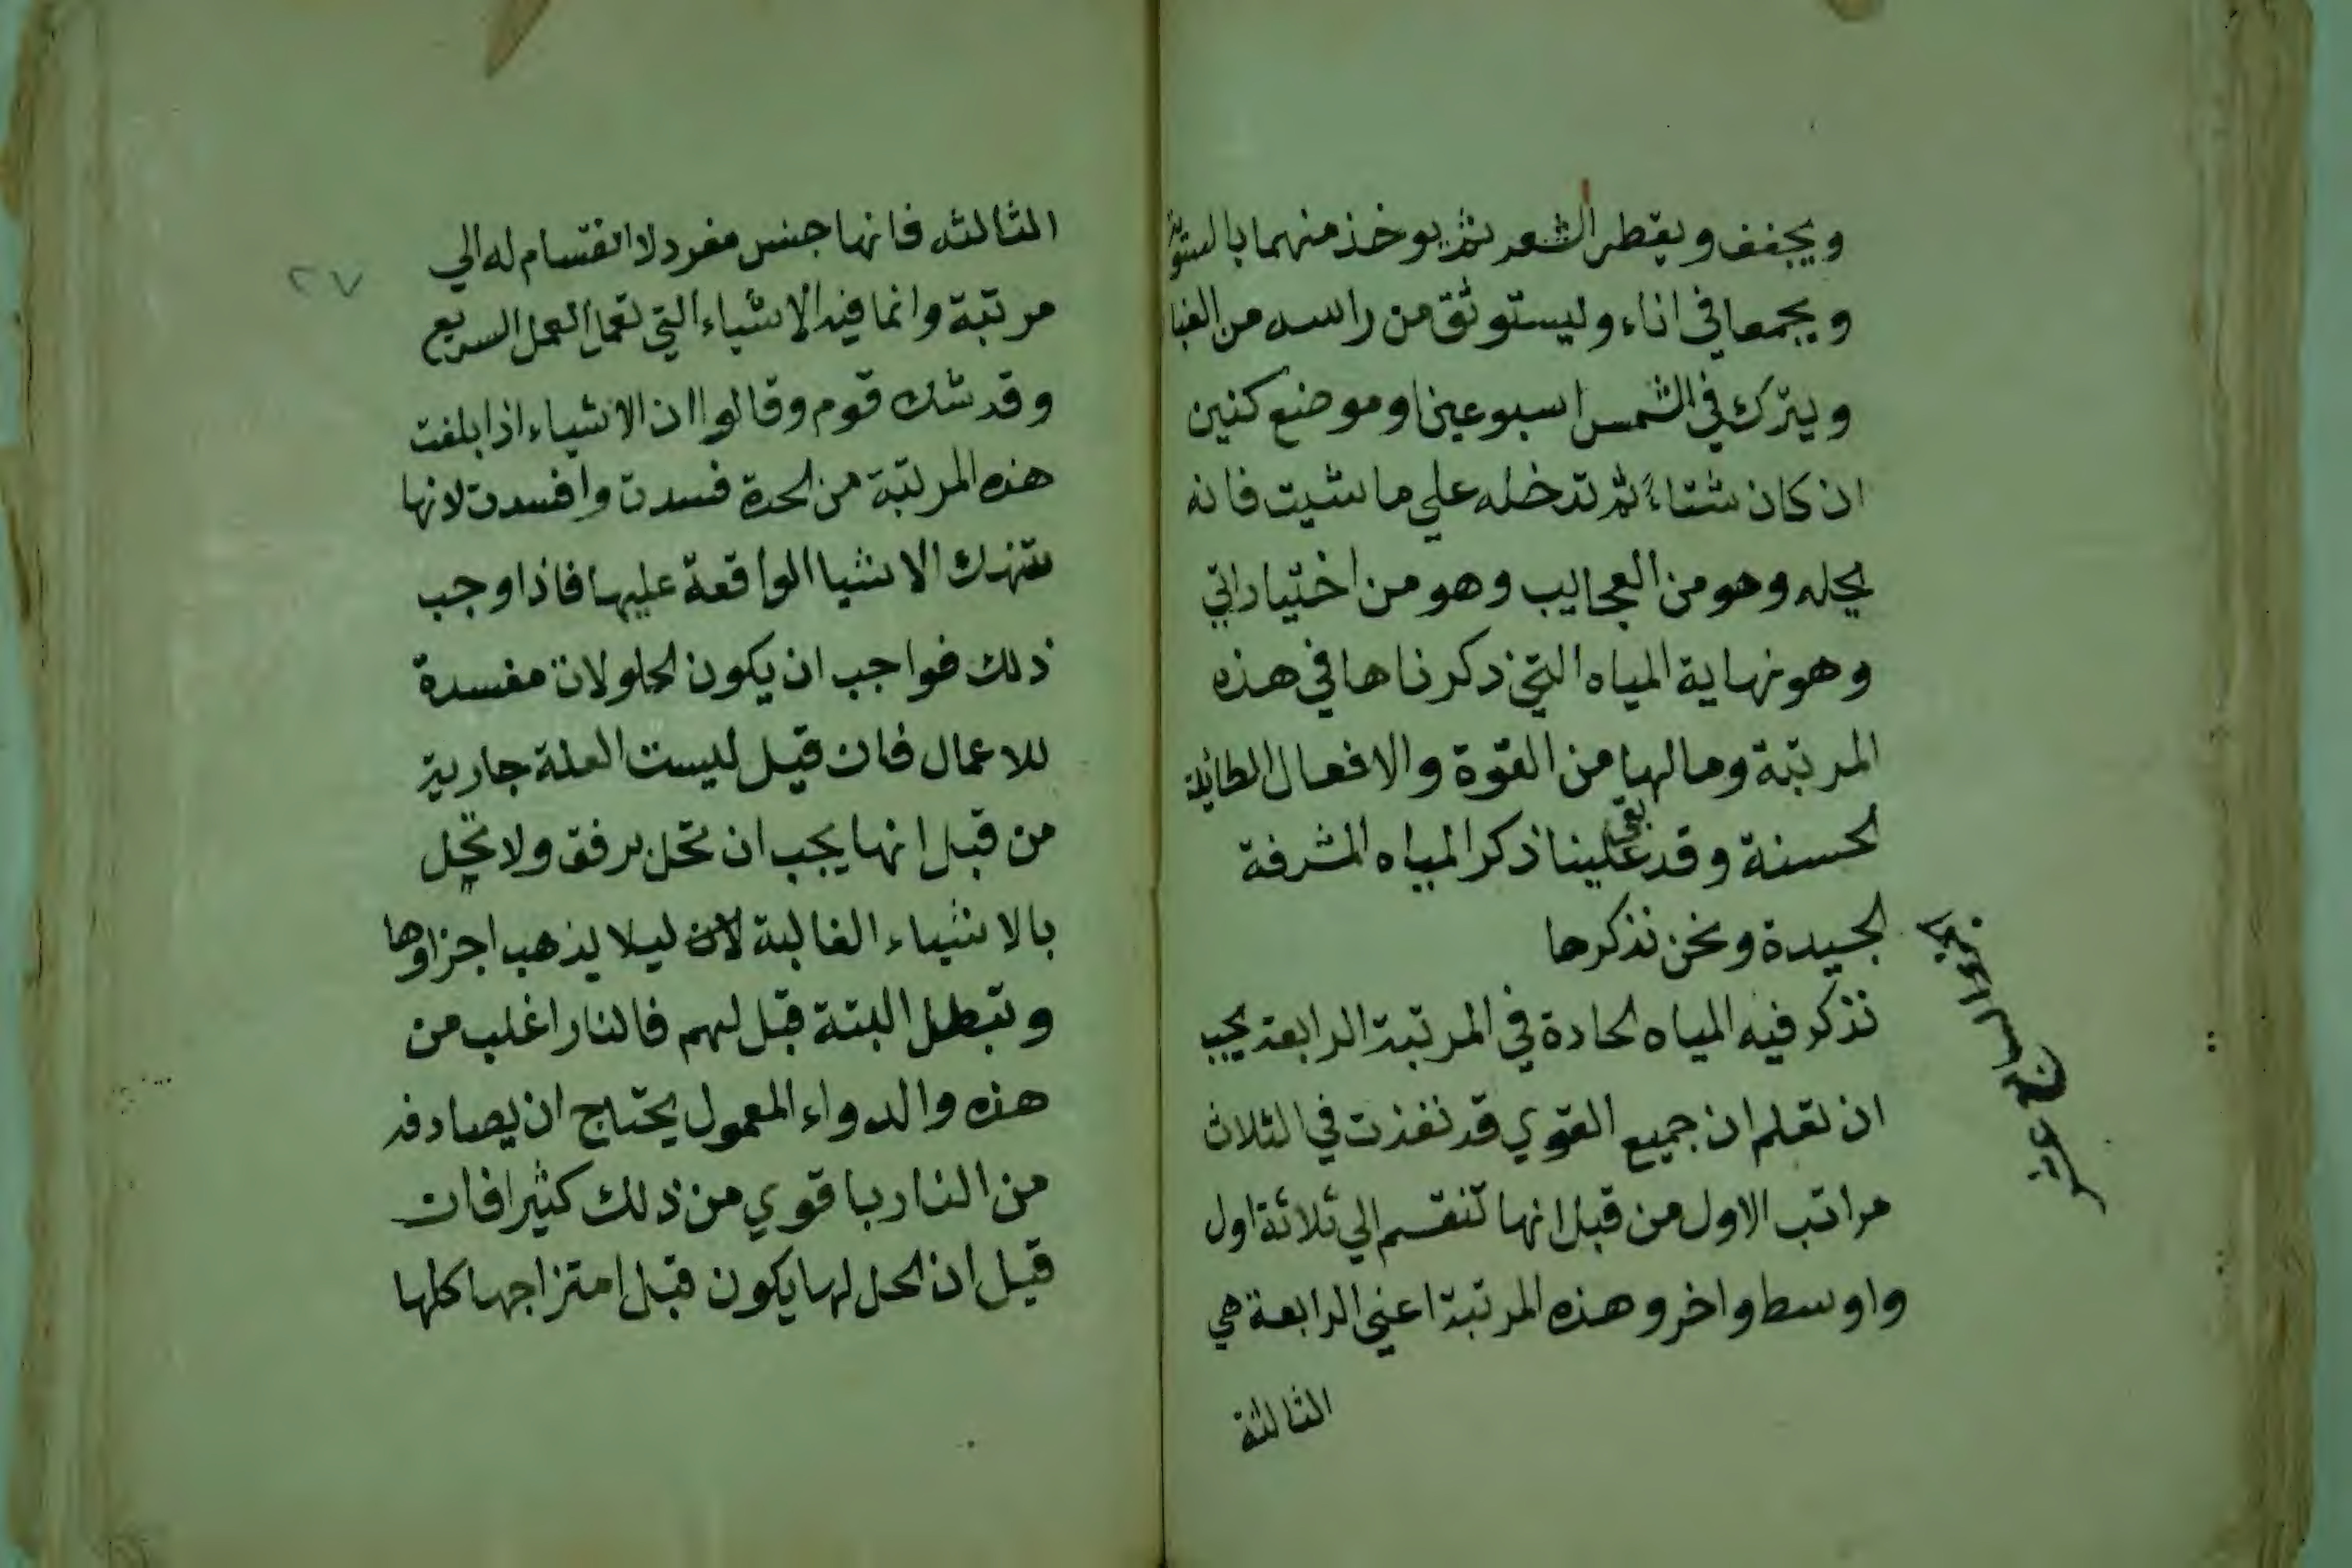 ويجفف ويقطر الشعر ثم يوخذ منهما بالسوية
ويجمعا في اناء وليستوثق من راسه من الغبا
ويترك في الشمس اسبوعين او موضع كنين
ان كان شتاء ثم تدخله علي ما شيت فانه
يحله وهو من العجايب وهو من اختياراتي
وهو نهاية المياه التي ذكرناها في هذه
المرتبة وما لها من القوة والافعال الطائلة
الحسنة وقد بقي علينا ذكر المياه المشرفة
الجيدة ونحن نذكرها
نذكر فيه المياه الحادة في المرتبة الرابعة يجب
ان تعلم ان جميع القوي قد نفذت في الثلاث
مراتب الاول من قبل انها تنقسم الي ثلاثة اول
واوسط واخر وهذه المرتبة اعني الرابعة هي
الثالثة
الثالثه فانها جنس مفرد لا انقسام له الي
مرتبة وانما فيه الاشياء التي تعمل العمل السريع
وقد شك قوم وقالوا ان الاشياء اذا بلغت
هذه المرتبة من الحدة فسدت وافسدت لانها
تنهك الاشيا الواقعة عليها فاذا وجب
ذلك فواجب ان يكون الحلولات مفسدة
للاعمال فان قيل ليست العلة جارية
من قبل انها يجب ان تحل برفق ولا تحل
بالاشياء الغالبة لان ليلا يذهب اجزاوها
وتبطل البتة قبل لهم فالنار اغلب من
هذه والدواء المعمول يحتاج ان يصادفه
من النار با قوي من ذلك كثيرا فان
قيل ان الحل لها يكون قبل امتزاجها كلها
٢٧